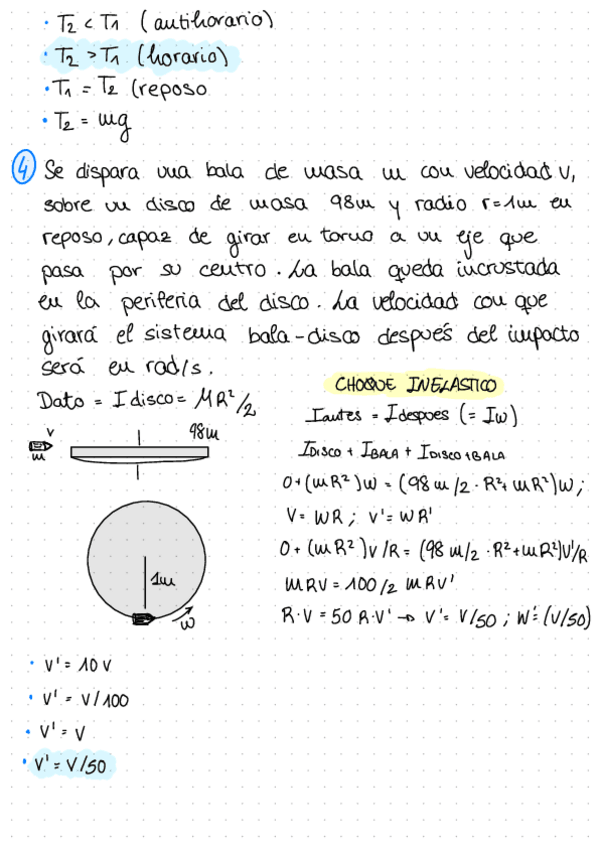 • T2 < T1 (antihorario)
• T2 > T1 (horario)
• T1 = T2 (reposo
• T2 = mg
4 Se dispara una bala de masa m con velocidad v,
sobre un disco de masa 98m y radio r=1m en
reposo, capaz de girar en torno a un eje que
pasa por su centro. La bala queda incrustada
en la periferia del disco. La velocidad con que
girará el sistema bala-disco después del impacto
será en rad/s.
Dato = I disco = MR²/2
CHOQUE INELASTICO
Iantes = Idespues (= Iw)
IDISCO + IBALA + IDISCO+BALA
0+(mR²)w = (98m/2 · R²+mR²)w;
V = WR ; v' = wR'
0+(mR²)v/R = (98m/2 · R²+mR²)v'/R
mRV = 100/2 mRV'
R·V = 50 R·V' → V' = V/50 ; W' = (V/50)
v
m
98m
1m
w
• V' = 10V
• V' = V/100
• V' = V
• V' = V/50